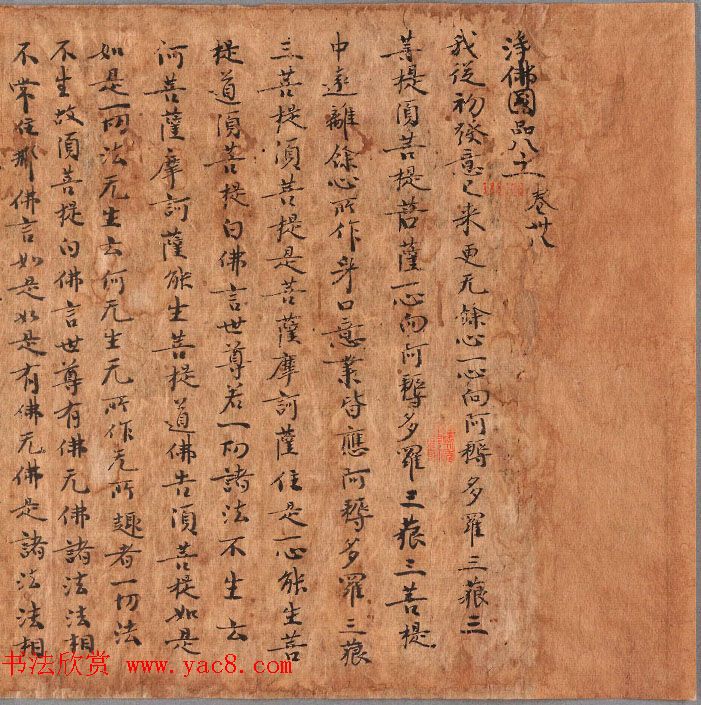 淨佛國品八十二 卷卅八
我從初發意已来更无餘心一心向阿耨多羅三藐三
菩提湏菩提菩薩一心向阿耨多羅三藐三菩提
中遠離餘心所作身口意業皆應阿耨多羅三藐
三菩提湏菩提是菩薩摩訶薩住是心能生菩
提道湏菩提白佛言世尊若一切諸法不生云
何菩薩摩訶薩能生菩提道佛告湏菩提如是
如是一切法无生云何无生无所作无所趣者一切法
不生故湏菩提白佛言世尊有佛无佛諸法法相
不常住耶佛言如是如是有佛无佛是諸法法相
书法欣赏 www.yac8.com